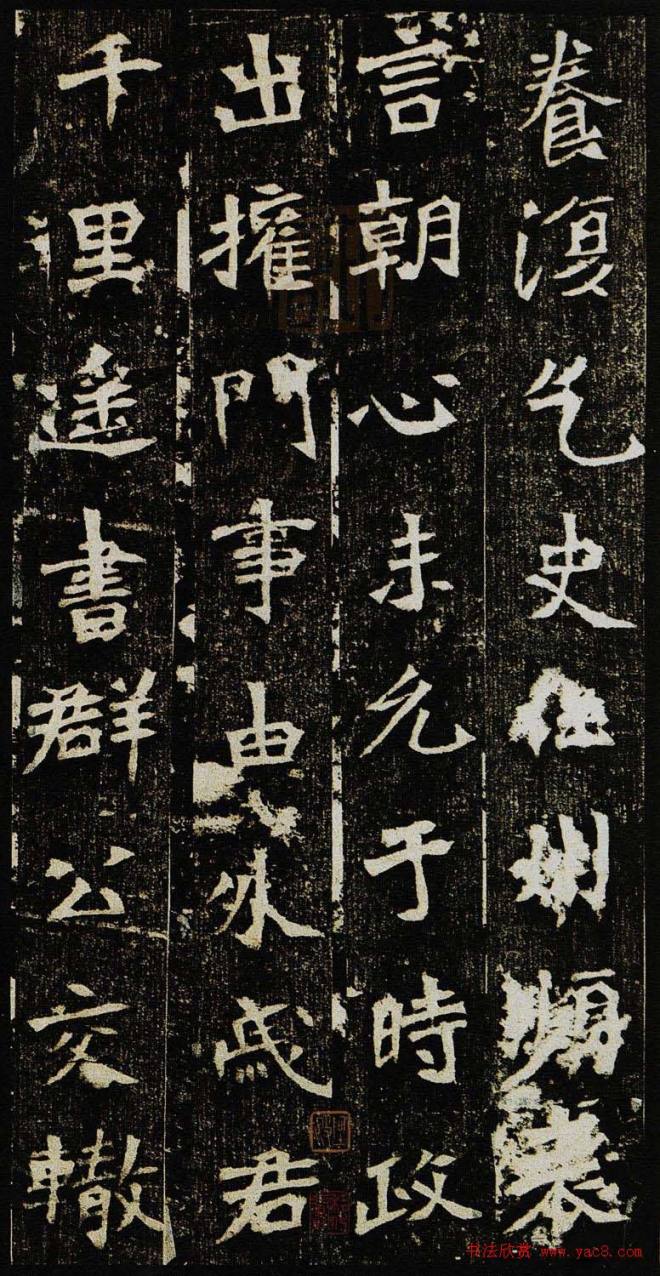 養復乞史任州頻表
言朝心未允于時政
出權門事由外戚君
千里遥書群公交轍
书法欣赏 www.yac8.com